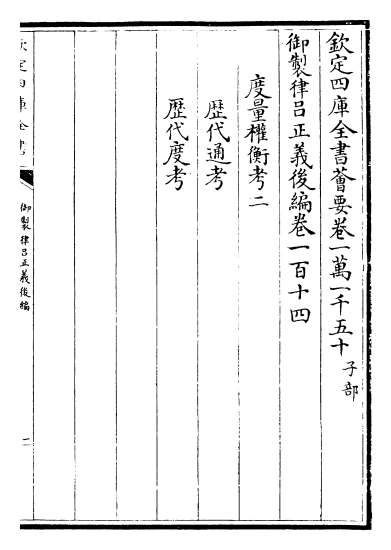 欽定四庫全書薈要卷一萬一千五十子部
御製律呂正義後編卷一百十四
度量權衡考二
歷代通考
歷代度考
欽定四庫全書
御製律呂正義後編